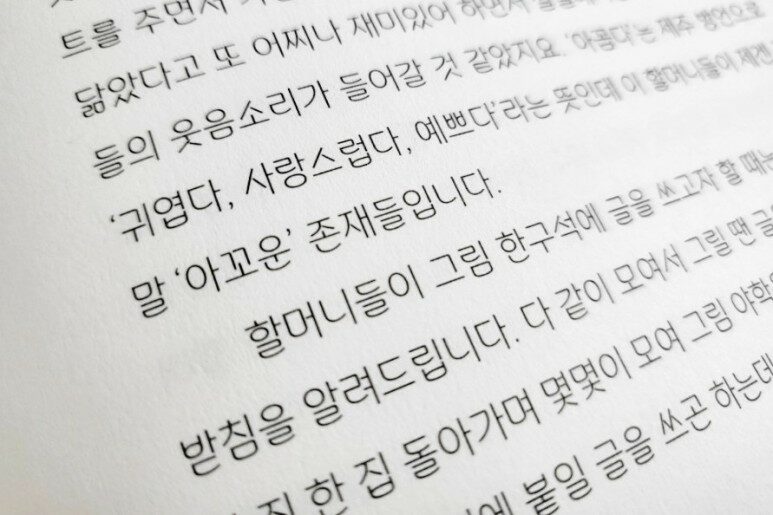 트를 주면서
닮았다고 또 어찌나 재미있어 하면서
들의 웃음소리가 들어갈 것 같았지요. ‘아꼽다’는 제주 방언으로
‘귀엽다, 사랑스럽다, 예쁘다’라는 뜻인데 이 할머니들이
말 ‘아꼬운’ 존재들입니다.
할머니들이 그림 한구석에 글을 쓰고자 할 때는
받침을 알려드립니다. 다 같이 모여서 그릴 땐
한 집 돌아가며 몇몇이 모여 그림
붙일 글을 쓰곤 하는데